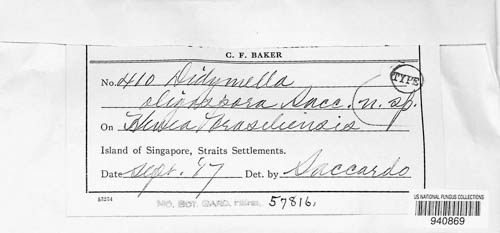 C. F. BAKER
No. 410 Didymella
TYPE
oligospora Sacc. n. sp.
On Hevea brasiliensis
Island of Singapore, Straits Settlements.
Date Sept. '17 Det. by Saccardo
MO. BOT. GARD. HERB. 57816.
US NATIONAL FUNGUS COLLECTIONS
940869